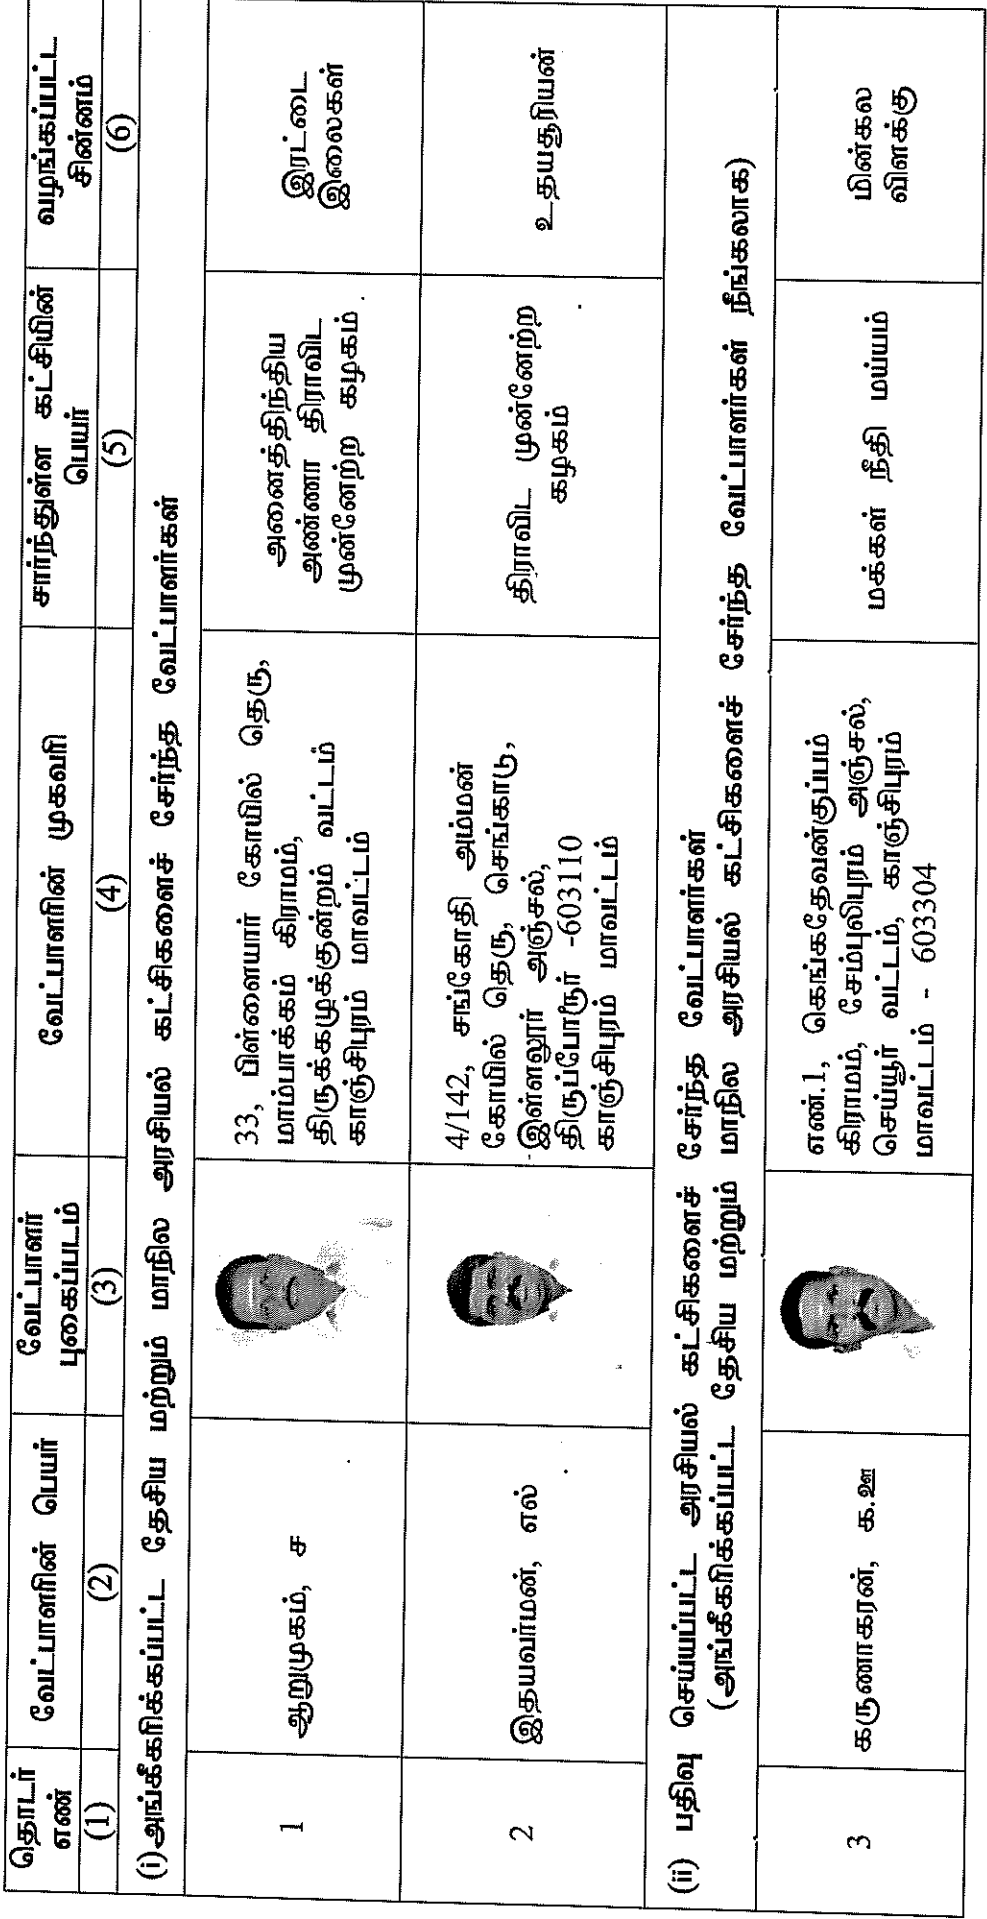 தொடர் எண்
வேட்பாளரின் பெயர்
வேட்பாளர் புகைப்படம்
வேட்பாளரின் முகவரி
சார்ந்துள்ள கட்சியின் பெயர்
வழங்கப்பட்ட சின்னம்
(1)
(2)
(3)
(4)
(5)
(6)
(i)அங்கீகரிக்கப்பட்ட தேசிய மற்றும் மாநில அரசியல் கட்சிகளைச் சேர்ந்த வேட்பாளர்கள்
1
ஆறுமுகம், ச
33, பிள்ளையார் கோயில் தெரு,
மாம்பாக்கம் கிராமம்,
திருக்கழுக்குன்றம் வட்டம்
காஞ்சிபுரம் மாவட்டம்
அனைத்திந்திய
அண்ணா திராவிட
முன்னேற்ற கழகம்
இரட்டை
இலைகள்
2
இதயவர்மன், எல்
4/142, சங்கோதி அம்மன்
கோயில் தெரு, செங்காடு,
இள்ளலூர் அஞ்சல்,
திருப்போரூர் -603110
காஞ்சிபுரம் மாவட்டம்
திராவிட முன்னேற்ற
கழகம்
உதயசூரியன்
(ii) பதிவு செய்யப்பட்ட அரசியல் கட்சிகளைச் சேர்ந்த வேட்பாளர்கள்
(அங்கீகரிக்கப்பட்ட தேசிய மற்றும் மாநில அரசியல் கட்சிகளைச் சேர்ந்த வேட்பாளர்கள் நீங்கலாக)
3
கருணாகரன், க.ஊ
எண்.1, கெங்கதேவன்குப்பம்
கிராமம், சேம்புலிபுரம் அஞ்சல்,
செய்யூர் வட்டம், காஞ்சிபுரம்
மாவட்டம் - 603304
மக்கள் நீதி மய்யம்
மின்கல
விளக்கு